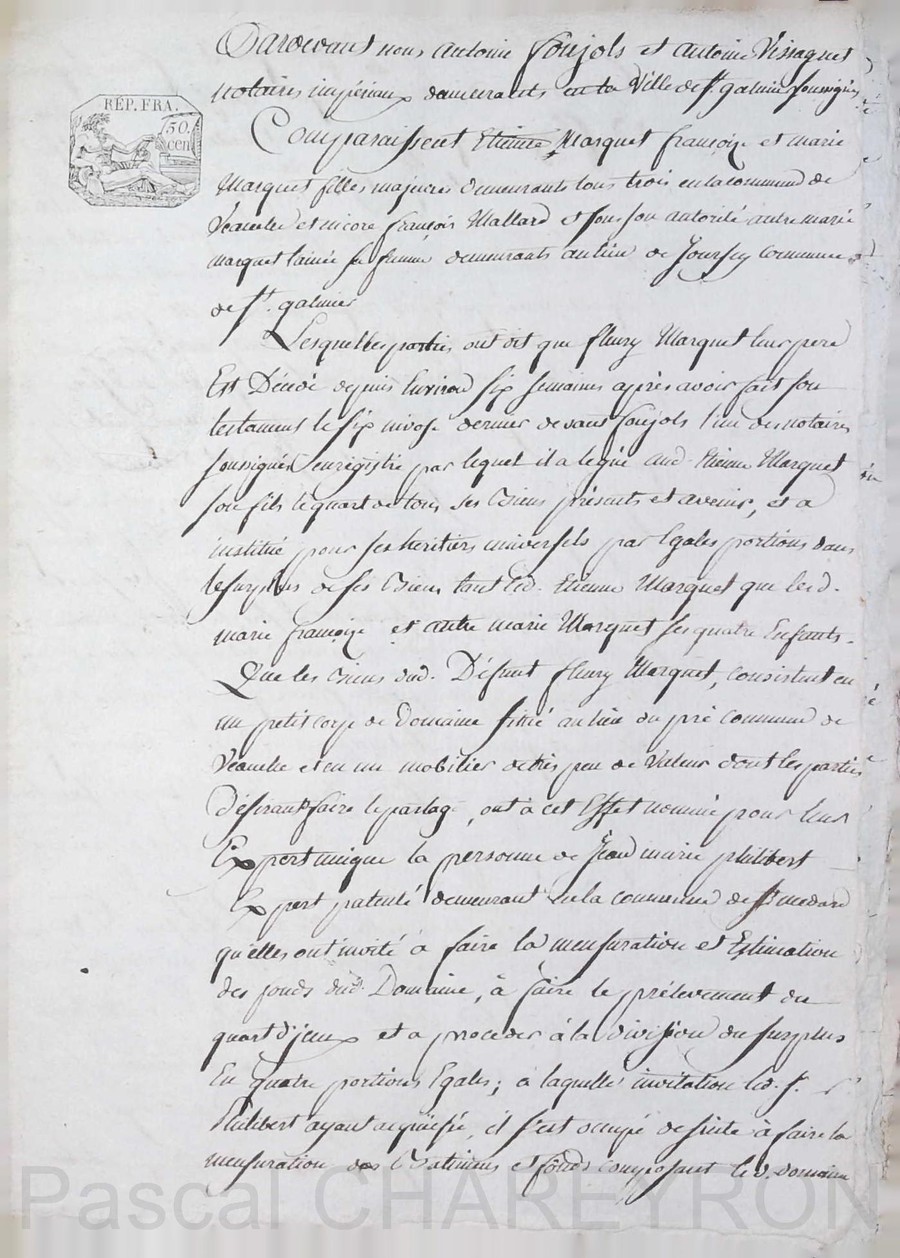 RÉP. FRA.
50.
cen
Pardevant nous antoine foujols et antoine Vissaguet
notaires impériaux demeurants en la Ville de st. galmier soussignés
Comparaissent Etienne Marquet françoize et marie
Marquet filles majeures demeurants tous trois en la commune de
Veauche et encore françois Mallard et sous son autorité autre marie
marquet l'ainée sa femme demeurants au lieu de Joursey commune
de st. galmier
Lesquelles parties ont dit que fleury Marquet leur pere
Est Décédé depuis Environ six semaines après avoir fait son
testament le six nivose dernier devant foujols l'un des notaires
soussignés enregistré par lequel il a legué aud. Etienne Marquet
son fils le quart de tous ses Biens présents et avenir, et a
institué pour ses heritiers universels par Egales portions dans
le surplus de ses Biens tant led. Etienne Marquet que lesd.
marie françoize et autre marie Marquet ses quatre Enfants.
Que les Biens dud. Défunt fleury Marquet, consistent en
un petit corps de Domaine situé au lieu du pré commune de
Veauche et en un mobilier de très peu de Valeur dont les parties
Désirant faire le partage, ont à cet Effet nommé pour leur
Expert unique la personne de Jean marie philibert
Expert patenté demeurant en la commune de st medard
qu'elles ont invité à faire la mensuration et Estimation
des fonds dud. Domaine, à faire le prélevement du
quart d'jeux et a proceder à la division du surplus
En quatre portions Egales; à laquelle invitation led. s.
Philibert ayant acquiescé, il s'est occupé de suite à faire la
mensuration des Batimens et fonds composant led. Domaine
Pascal CHAREYRON